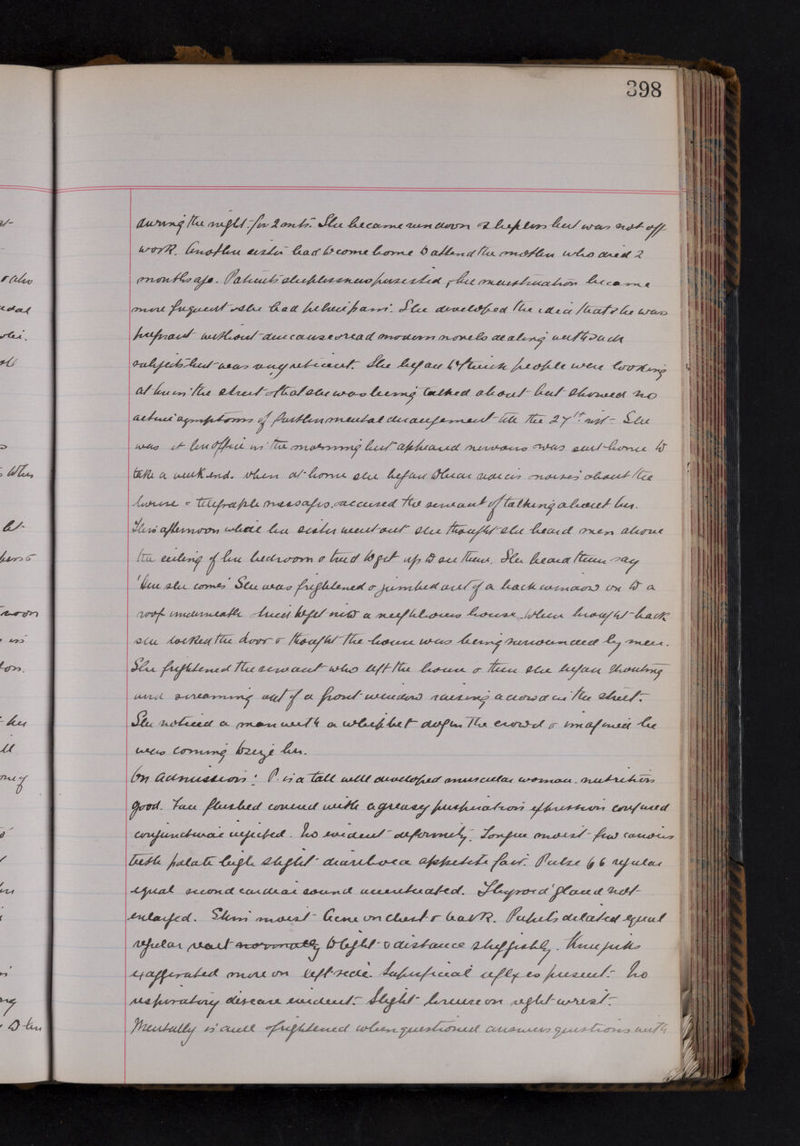 398
during the night for 2 mnts. She became run down & sleepless but was not off
work. Another sister had to come home to attend the mother who died 2
months ago. Patients sleeplessness persisted, the menstruation became
more frequent & she had pelvic pain. She developed the idea that she was
pregnant without due cause & read modern novels dealing with such
subjects but was very reticent. She began to think people were looking
at her in the street & that she was being talked about but showed no
active symptoms of further mental derangement till the 27th inst - She
was at her office in the morning but appeared nervous & was sent home to
take a week end. When at home she began to hear voices noises about the
house & telegraph messages, accused the servant of talking about her.
This afternoon while her sister went out she thought she heard men above
the ceiling of her bedroom & tried to get up to see them. She heard them say
'here she comes' She was frightened & jumped out of a back window on to a
roof underneath tried to get into a neighbours house. When brought back
she locked the door & thought the house was being surrounded by men.
She frightened the servant who left the house & then she began shouting
and screaming out of a front window raising a crowd in the street.
She noticed a man with a whippet dog in the crowd & imagined he
was coming to seize her.
On Admission: P. is a tall well developed muscular woman. nutrition
good. Face flushed covered with a greasy perspiration expression confused
conjunctivae injected. No evident deformity. Tongue moist few carious
teeth palate high slight diarrhoea appetite fair. Pulse 66 regular
equal second cardiac sound accentuated. Thyroid gland not
enlarged. Skin moist Acne on chest & back. Pupils dilated equal
regular react normally to light & distance sluggishly. Knee jerks
exaggerated more on left side. Superficial reflexes present. No
respiratory disease evident. Slight bruise on right wrist.
Mentally is dull & frightened when questioned answers questions with